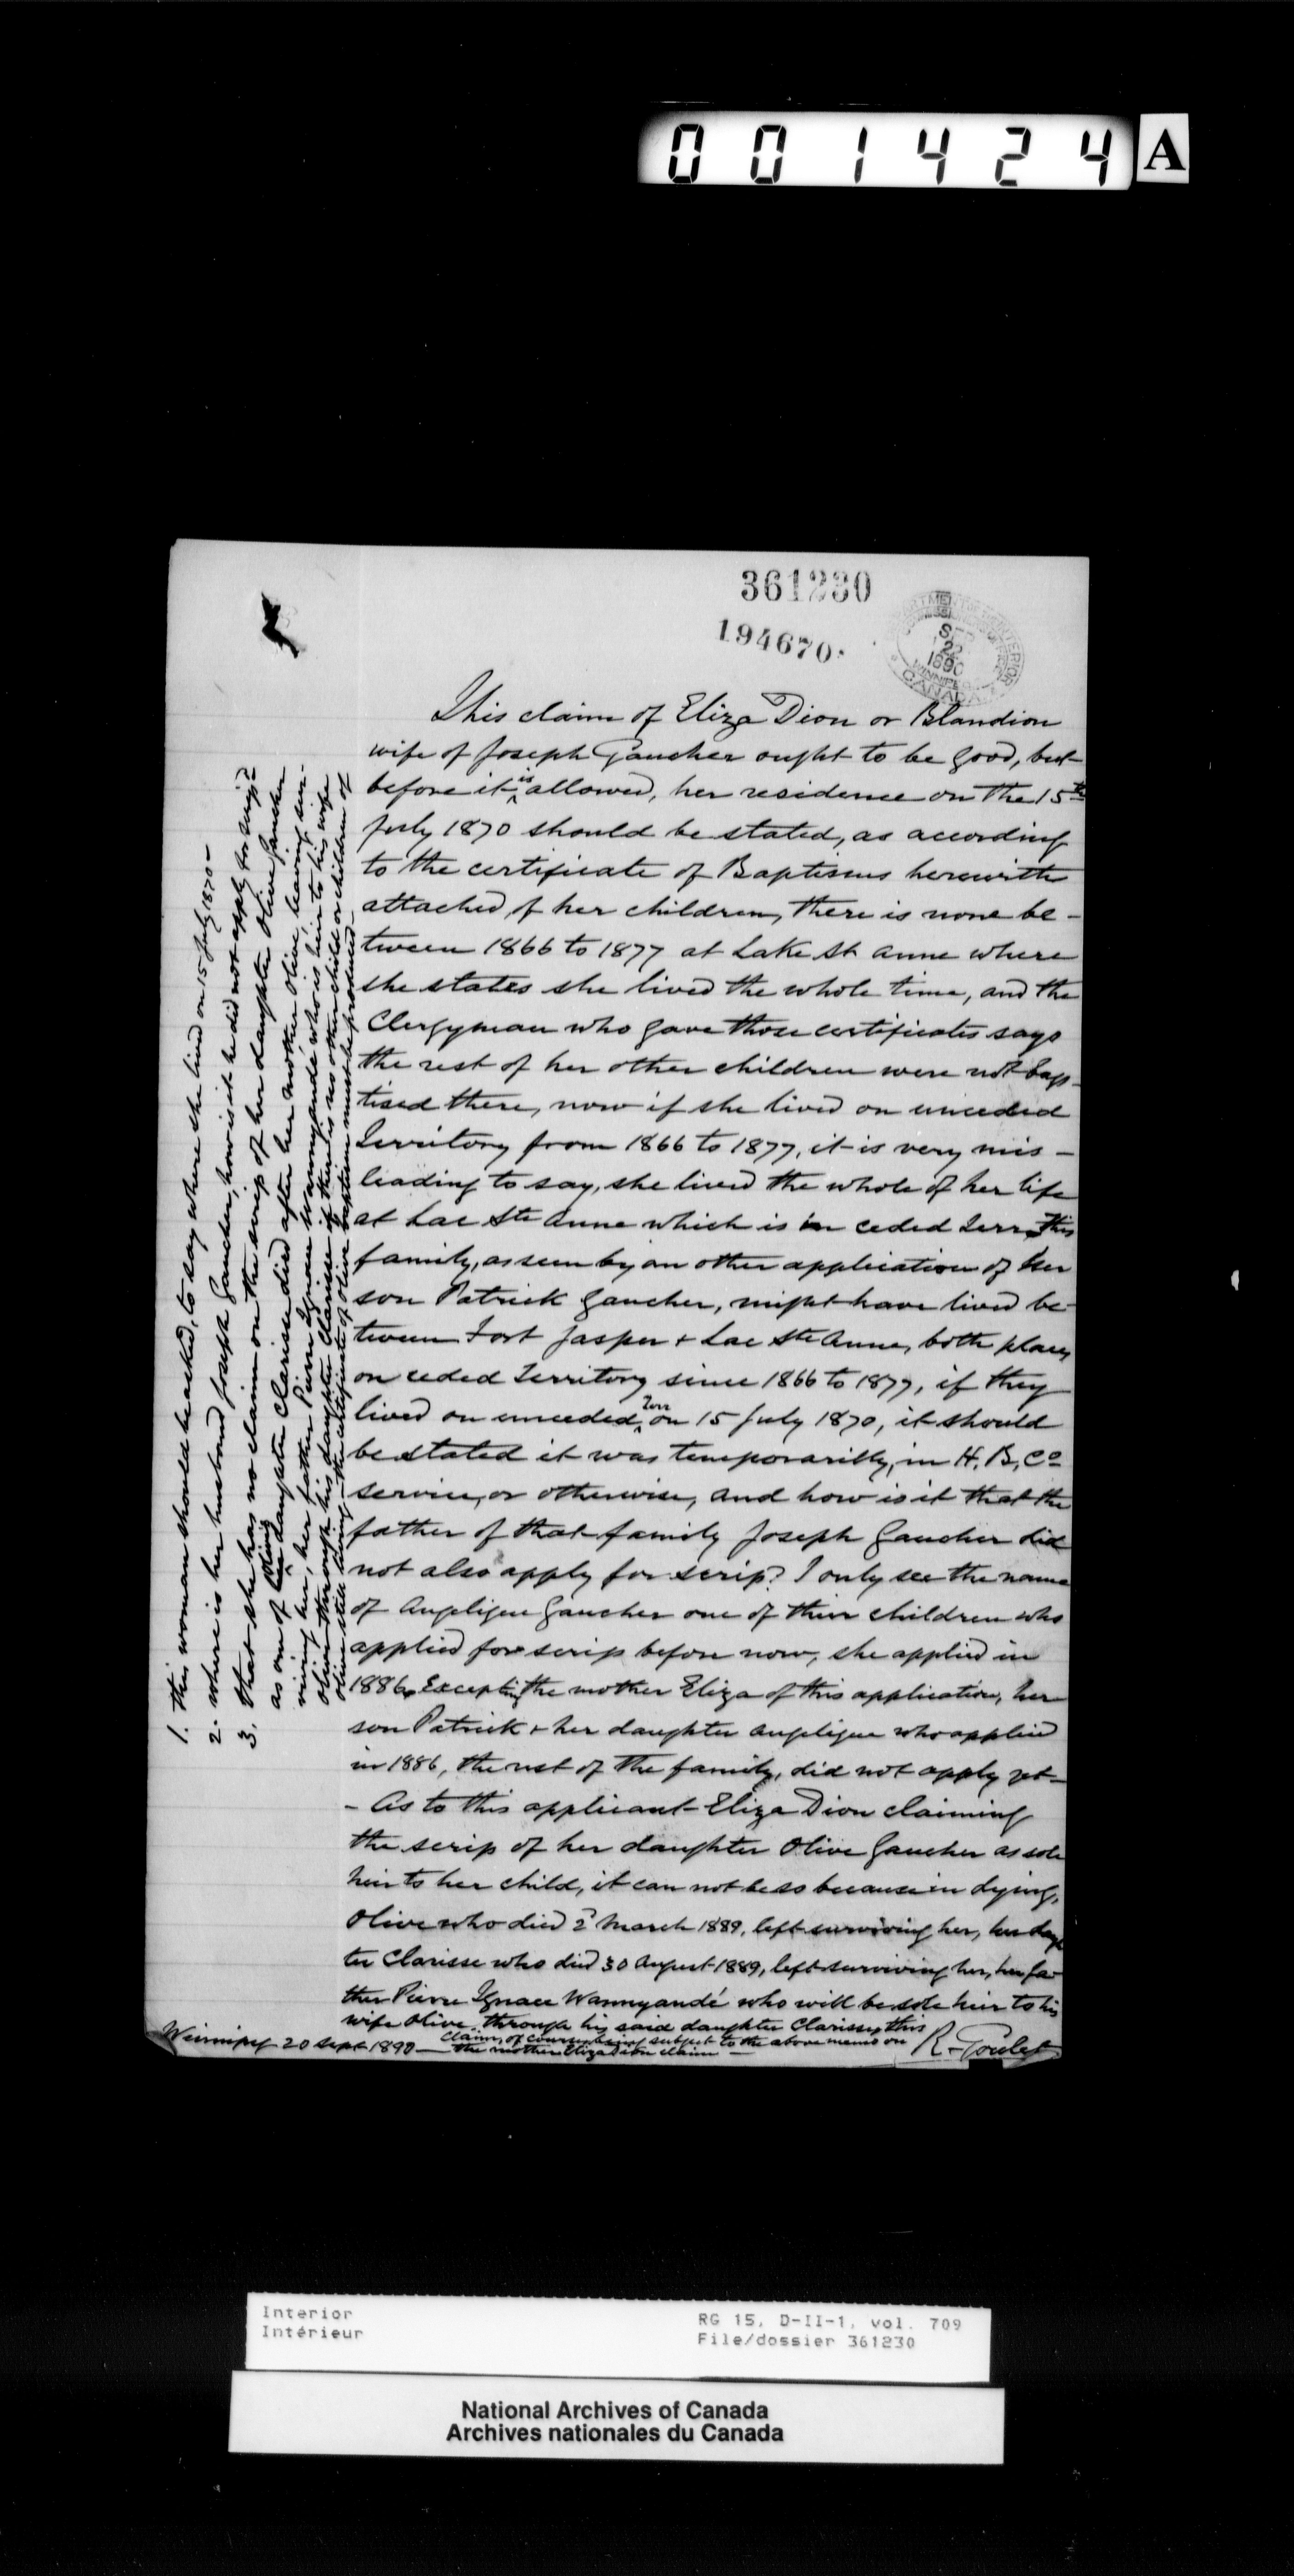 001424 A
361230
194670.
DEPARTMENT OF INTERIOR
SEP
22
1890
WINNIPEG
CANADA
This claim of Eliza Dion or Blandion
wife of Joseph Gaucher ought to be good, but
before it is allowed, her residence on the 15th
July 1870 should be stated, as according
to the certificate of Baptisms herewith
attached, of her children, there is none be-
tween 1866 to 1877 at Lake St Anne where
she states she lived the whole time, and the
Clergyman who gave those certificates says
the rest of her other children were not bap-
tised there, now if she lived on unceded
Territory from 1866 to 1877, it is very mis-
leading to say, she lived the whole of her life
at Lac Ste Anne which is in ceded Terr. This
family, as seen by an other application of her
son Patrick Gaucher, might have lived be-
tween Fort Jasper + Lac Ste Anne, both places
on ceded Territory since 1866 to 1877, if they
lived on unceded Terr on 15 July 1870, it should
be stated it was temporarilly, in H. B. Co
service, or otherwise, and how is it that the
father of that family Joseph Gaucher did
not also apply for scrip? I only see the name
of Angelique Gaucher one of their children who
applied for scrip before now, she applied in
1886, Excepting the mother Eliza of this application, her
son Patrick + her daughter Angelique who applied
in 1886, the rest of the family, did not apply yet -
- As to this applicant Eliza Dion claiming
the scrip of her daughter Olive Gaucher as sole
heir to her child, it can not be so because in dying,
Olive who died 2d March 1889, left surviving her, her daugh
ter Clarisse who died 30 August 1889, left surviving her, her fa-
ther Pierre Ignace Wannyandé who will be sole heir to his
wife Olive, through his said daughter Clarisse, this
claim, of course being subject to the above memo on
the mother Eliza Dion claim -
Winnipeg 20 Sept 1890 - R. Goulet
1. this woman should be asked, to say where she lived on 15 July 1870 -
2. where is her husband Joseph Gaucher, how is it he did not apply for scrip?
3. That she has no claim on the scrip of her daughter Olive Gaucher
as one of Olive's daughter Clarisse died after her mother Olive, leaving sur-
viving her, her father Pierre Ignace Wannyandé who is heir to his wife
Olive through his daughter Clarisse if there is no other child or children of
Olive still living - the certificate of Olive baptism must be produced -
Interior
Intérieur
RG 15, D-II-1, vol. 709
File/dossier 361230
National Archives of Canada
Archives nationales du Canada